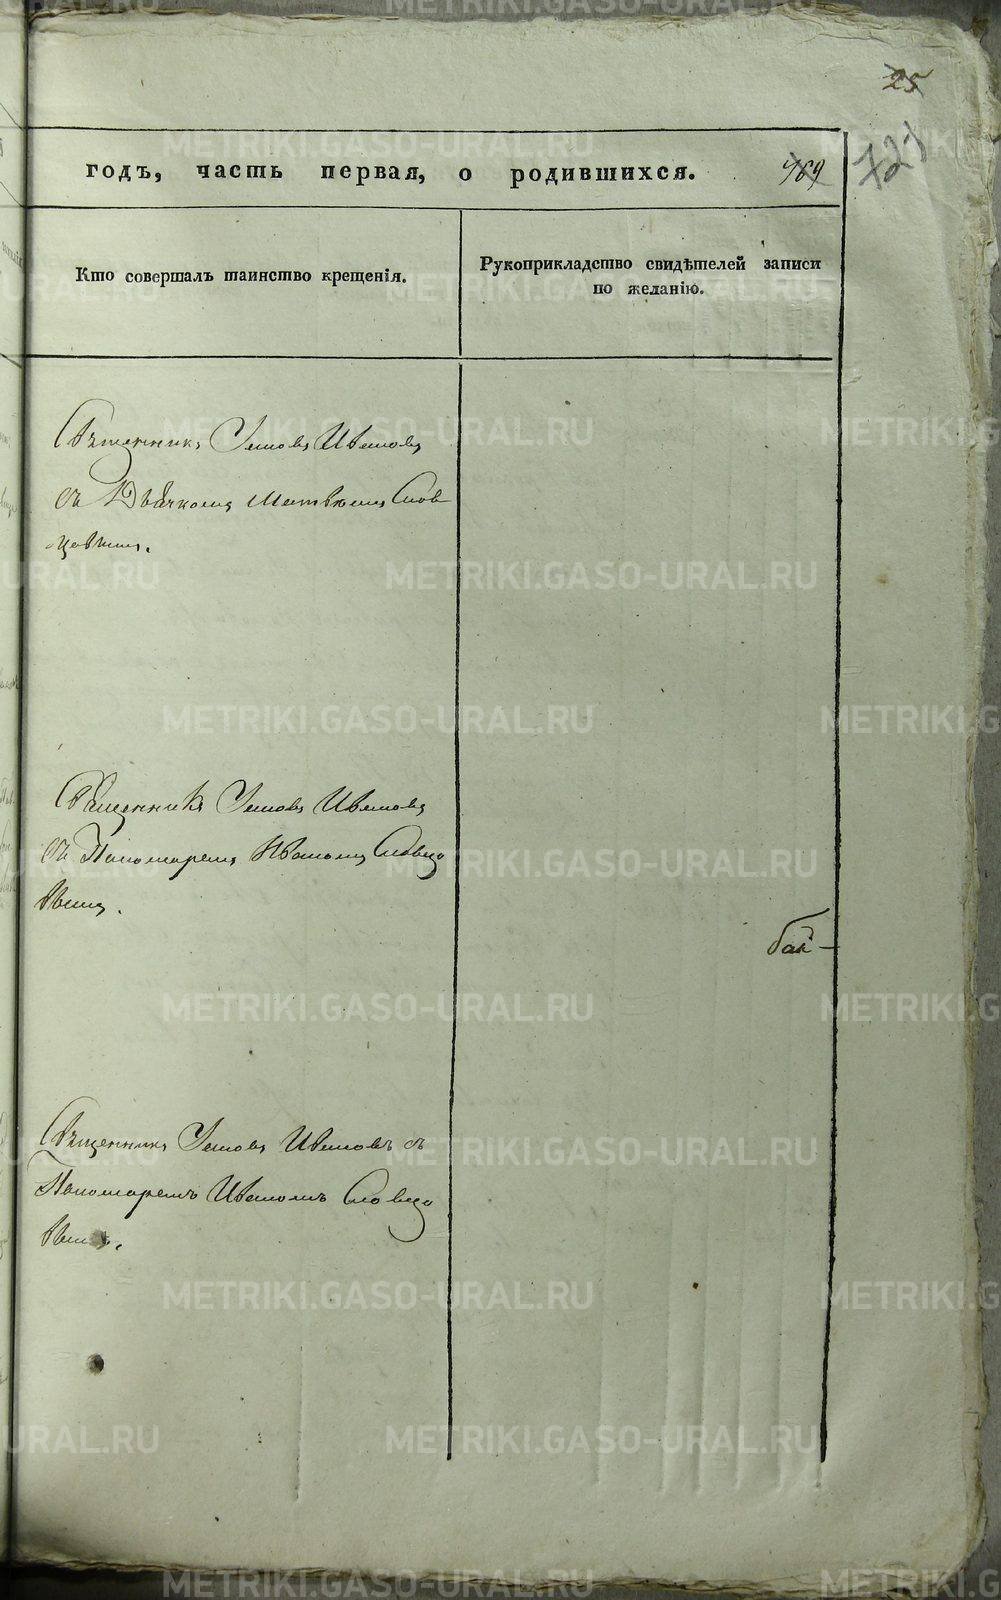 25
годъ, часть первая, о родившихся. 769
727
Кто совершалъ таинство крещенія.
Рукоприкладство свидѣтелей записи
по желанію.
Священникъ Иванов
съ Дьячкомъ Матвѣемъ Слов
цовымъ.
Священникъ Иванов
съ Пономаремъ Иваномъ Словцо
вымъ.
Священникъ Ивановъ съ
Пономаремъ Иваномъ Словцо
вымъ.
METRIKI.GASO-URAL.RU